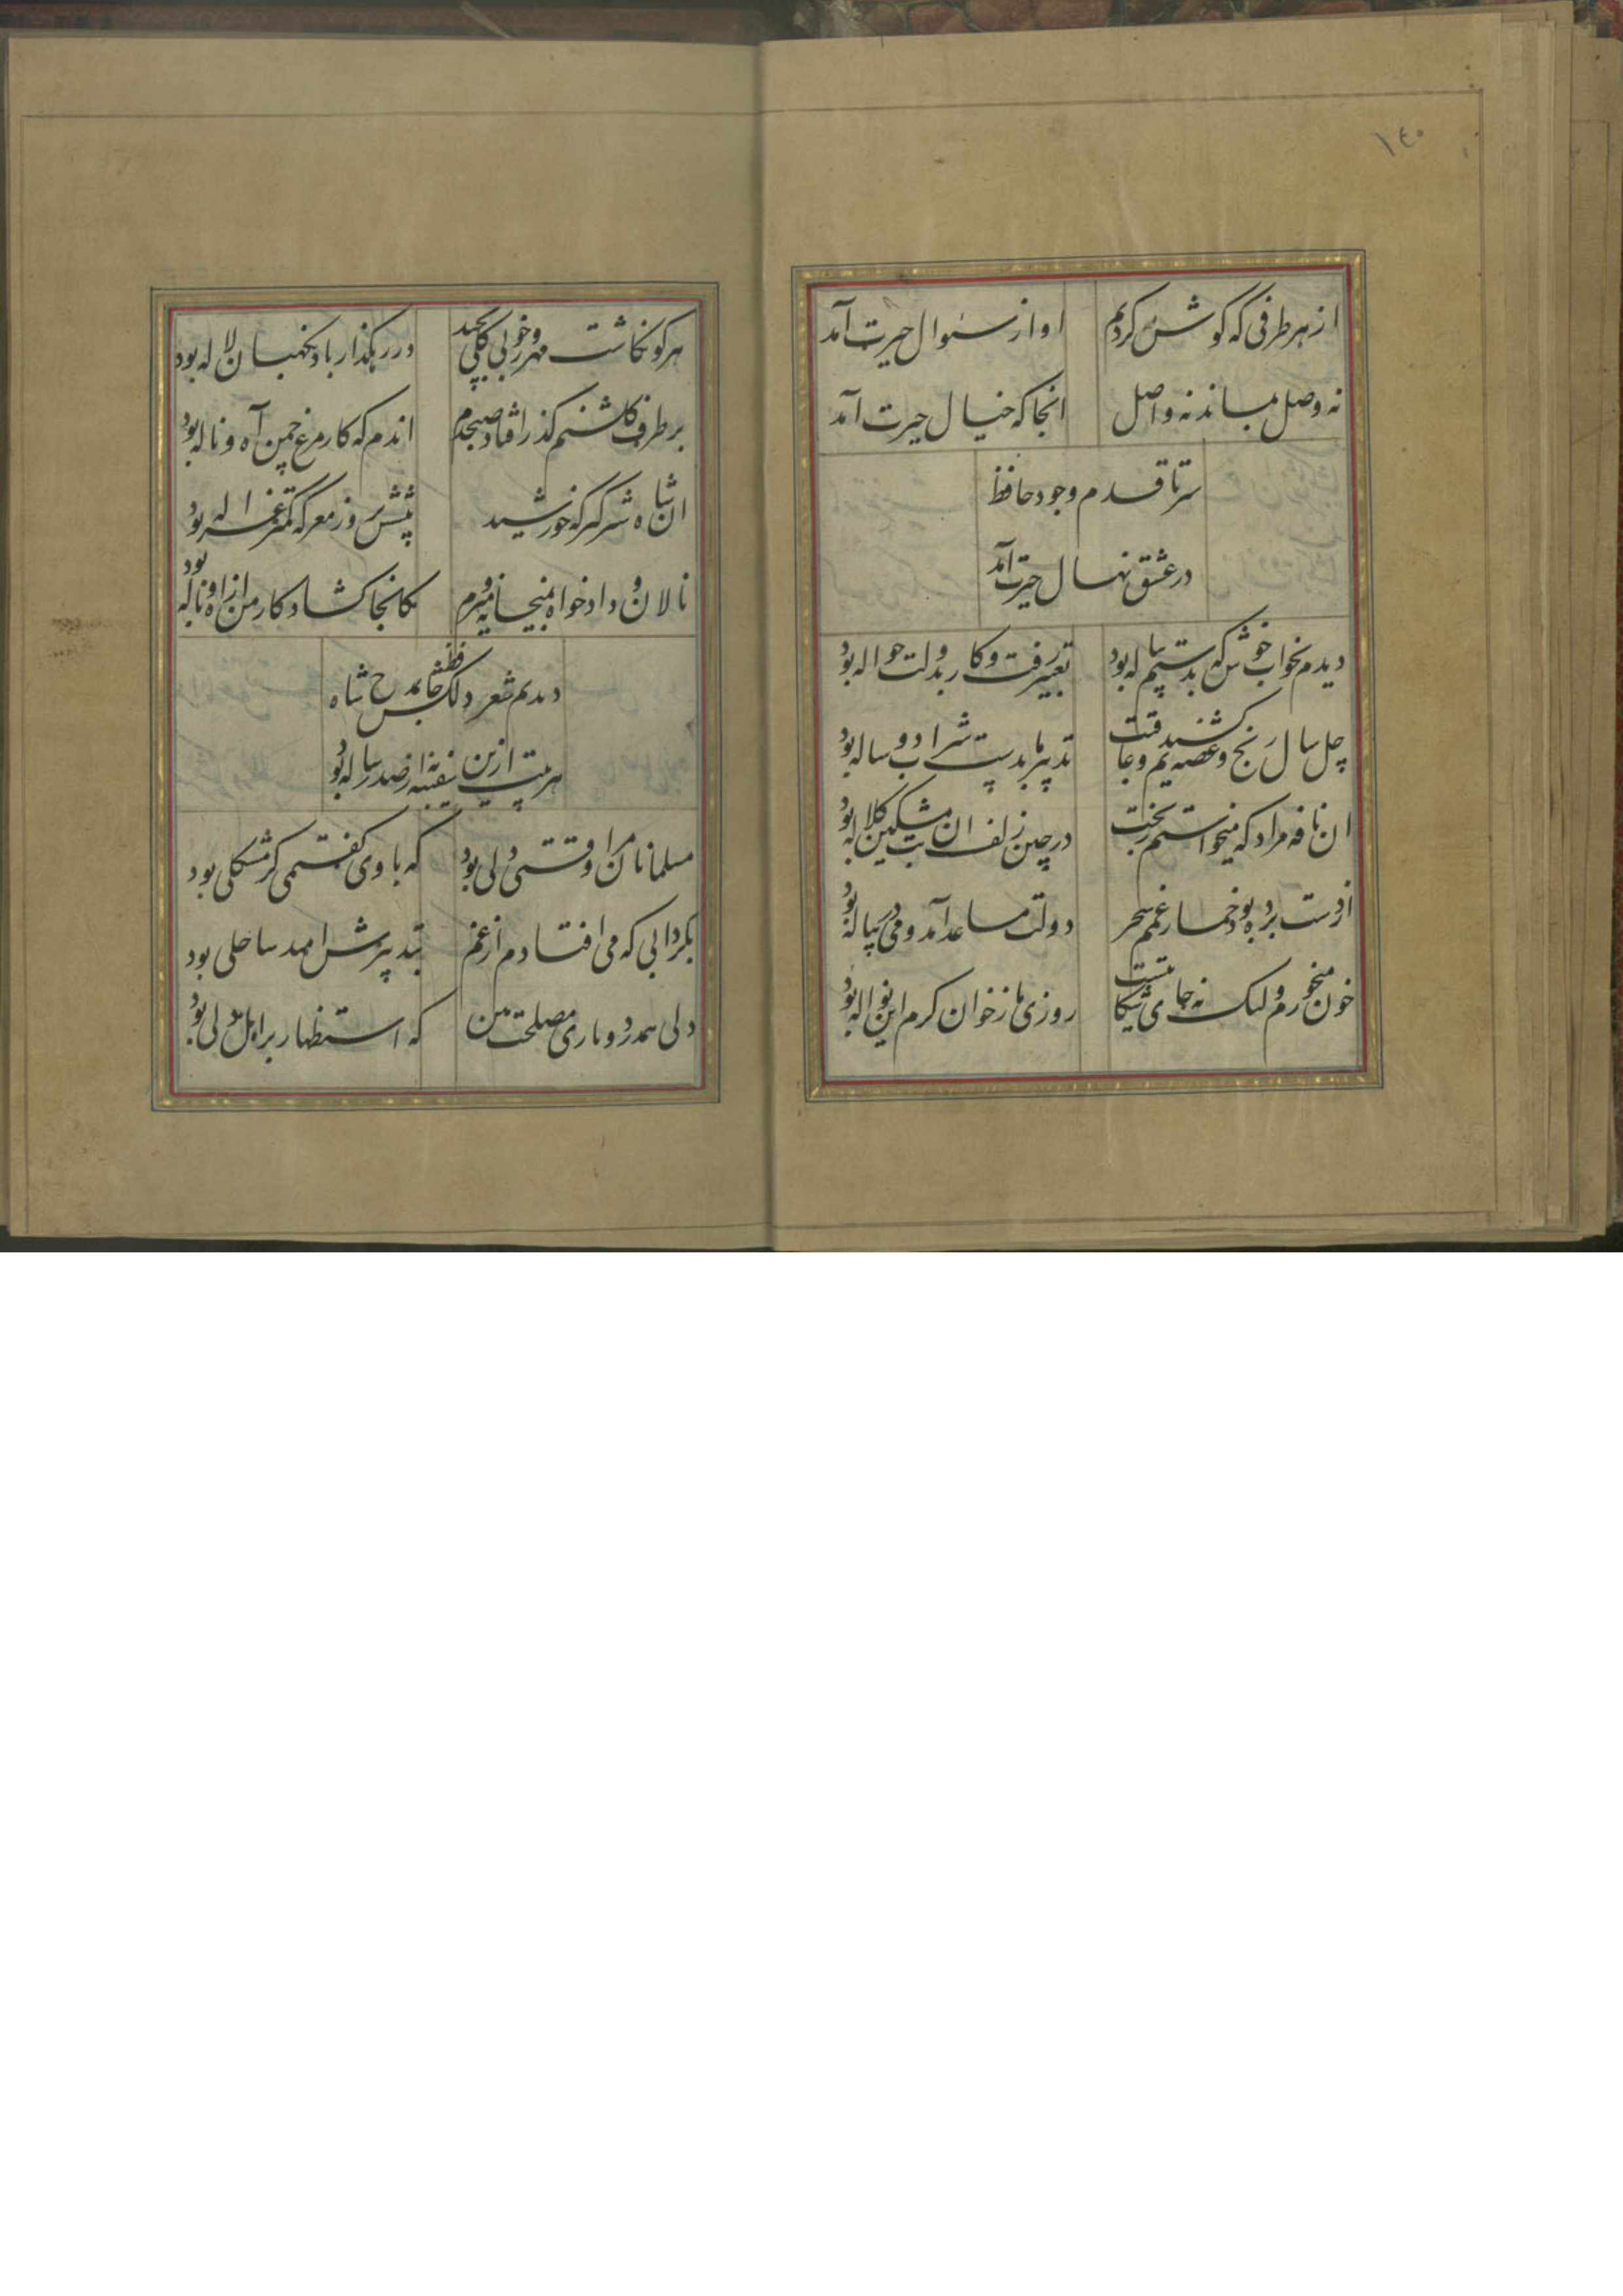 ١٤٠
از هر طرفی که کوش کردم اواز سئوال حیرت آمد
نه وصل بماند نه واصل انجا که خیال حیرت آمد
سر تا قدم وجود حافظ
در عشق نهال حیرت آمد
دیدم بخواب خوش که بدستم پیاله بود تعبیر رفت و کار بدولت حواله بود
چل سال رنج و غصه کشیدیم و عاقبت تدبیر ما بدست شراب دو ساله بود
ان نافه مراد که میخواستم ز بخت در چین زلف ان بت مشکین کلاله بود
از دست برده بود خمار غمم سحر دولت مساعد آمد و می در پیاله بود
خون میخورم ولیک نه جای شکایتست روزی ما ز خوان کرم این نواله بود
هر کو نکاشت مهر و ز خوبی کلی نچید در رهکذار باد نکهبان لاله بود
بر طرف کلشنم کذر افتاد صبحدم اندم که کار مرغ چمن آه و ناله بود
ان شاه شیرکیر که خورشید پیشش بروز معرکه کمتر غزاله بود
نالان و دادخواه بمیخانه میرم کانجا کشاد کار من از آه و ناله بود
دیدیم شعر دلکش حافظ بمدح شاه
هر بیت ازین سفینه به از صد رساله بود
مسلمانان مرا وقتی دلی بود که با وی کفتمی کر مشکلی بود
بکردابی که می افتادم از غم بتدبیرش امید ساحلی بود
دلی همدرد و یاری مصلحت بین که استظهار بر اهل دلی بود